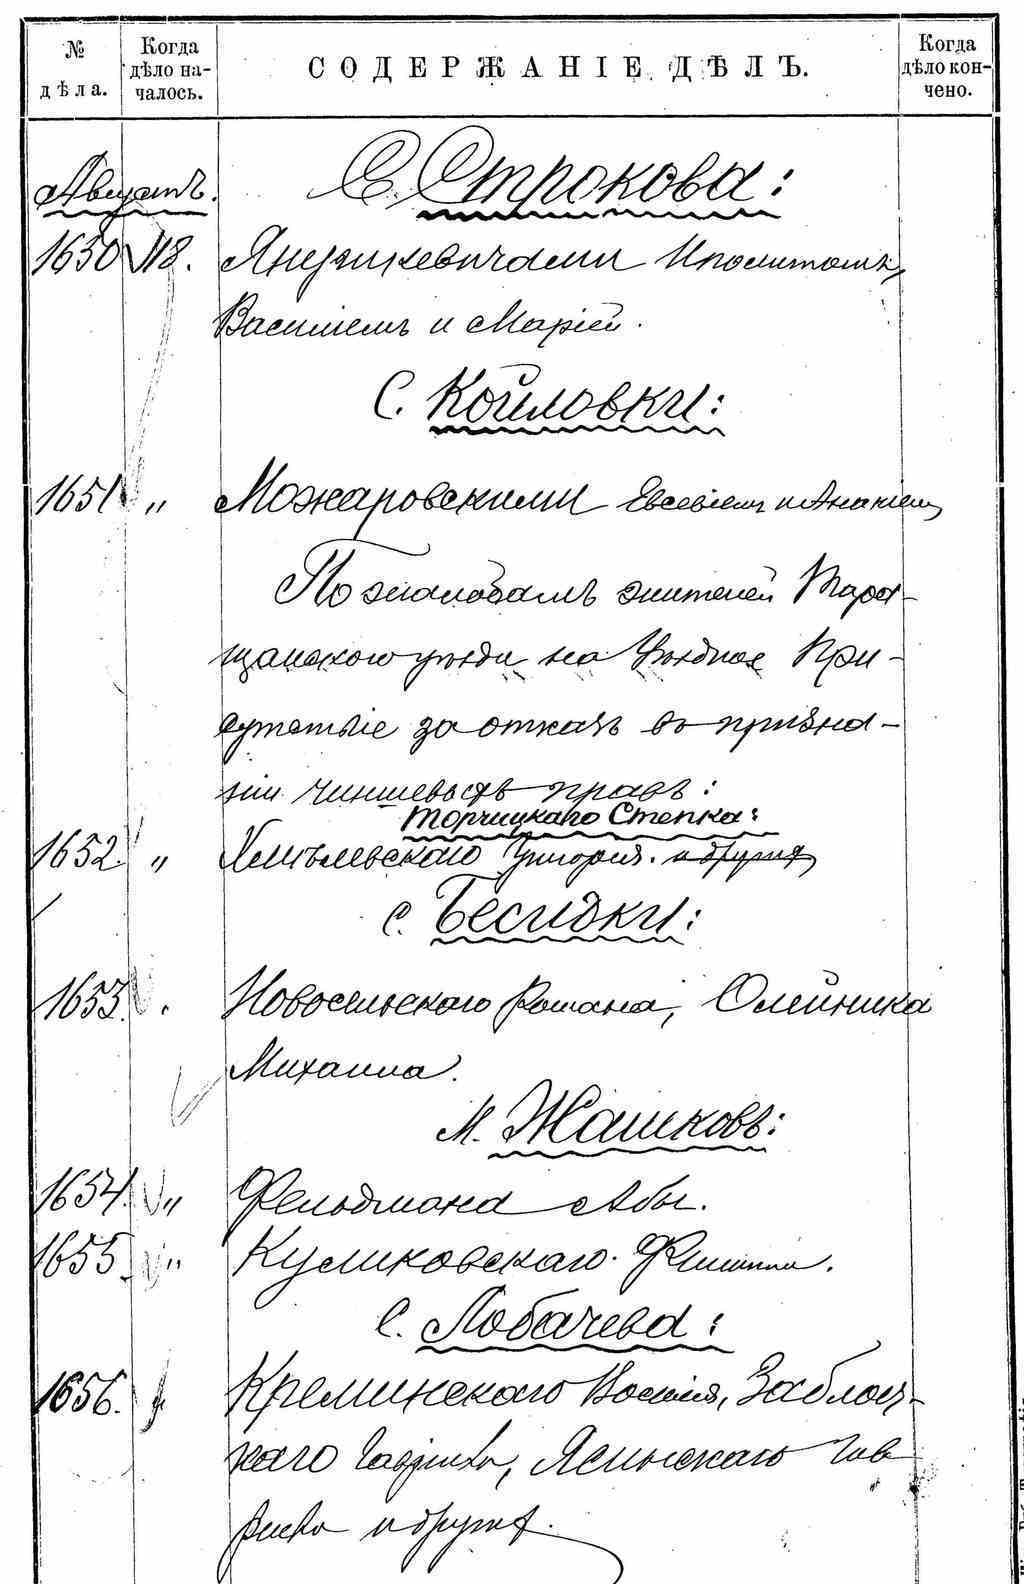 № дѣла.
Когда дѣло началось.
СОДЕРЖАНІЕ ДѢЛЪ.
Когда дѣло кончено.
Августъ.
С. Строкова:
1650 18. Янушкевичами Иполитомъ,
Василіемъ и Маріей.
С. Койловки:
1651 " Можаровскими Евсевіемъ и Ананіемъ
По жалобамъ жителей Тара-
щанскаго уѣзда на Уѣздное При-
сутствіе за отказъ въ призна-
ніи чиншевыхъ правъ:
Торчицкаго Степка:
1652 " Хмѣлевскаго Григорія и другихъ
с. Бесидки:
1653. Новосельскаго Романа, Олейника
Михаила.
м. Жашковъ:
1654. " Фельдмана Абы.
1655. " Куликовскаго Филиппа.
С. Лобачева:
1656. Креминскаго Василія, Заблоц-
каго Гавріила, Ясинскаго Гав
ріила и другихъ.